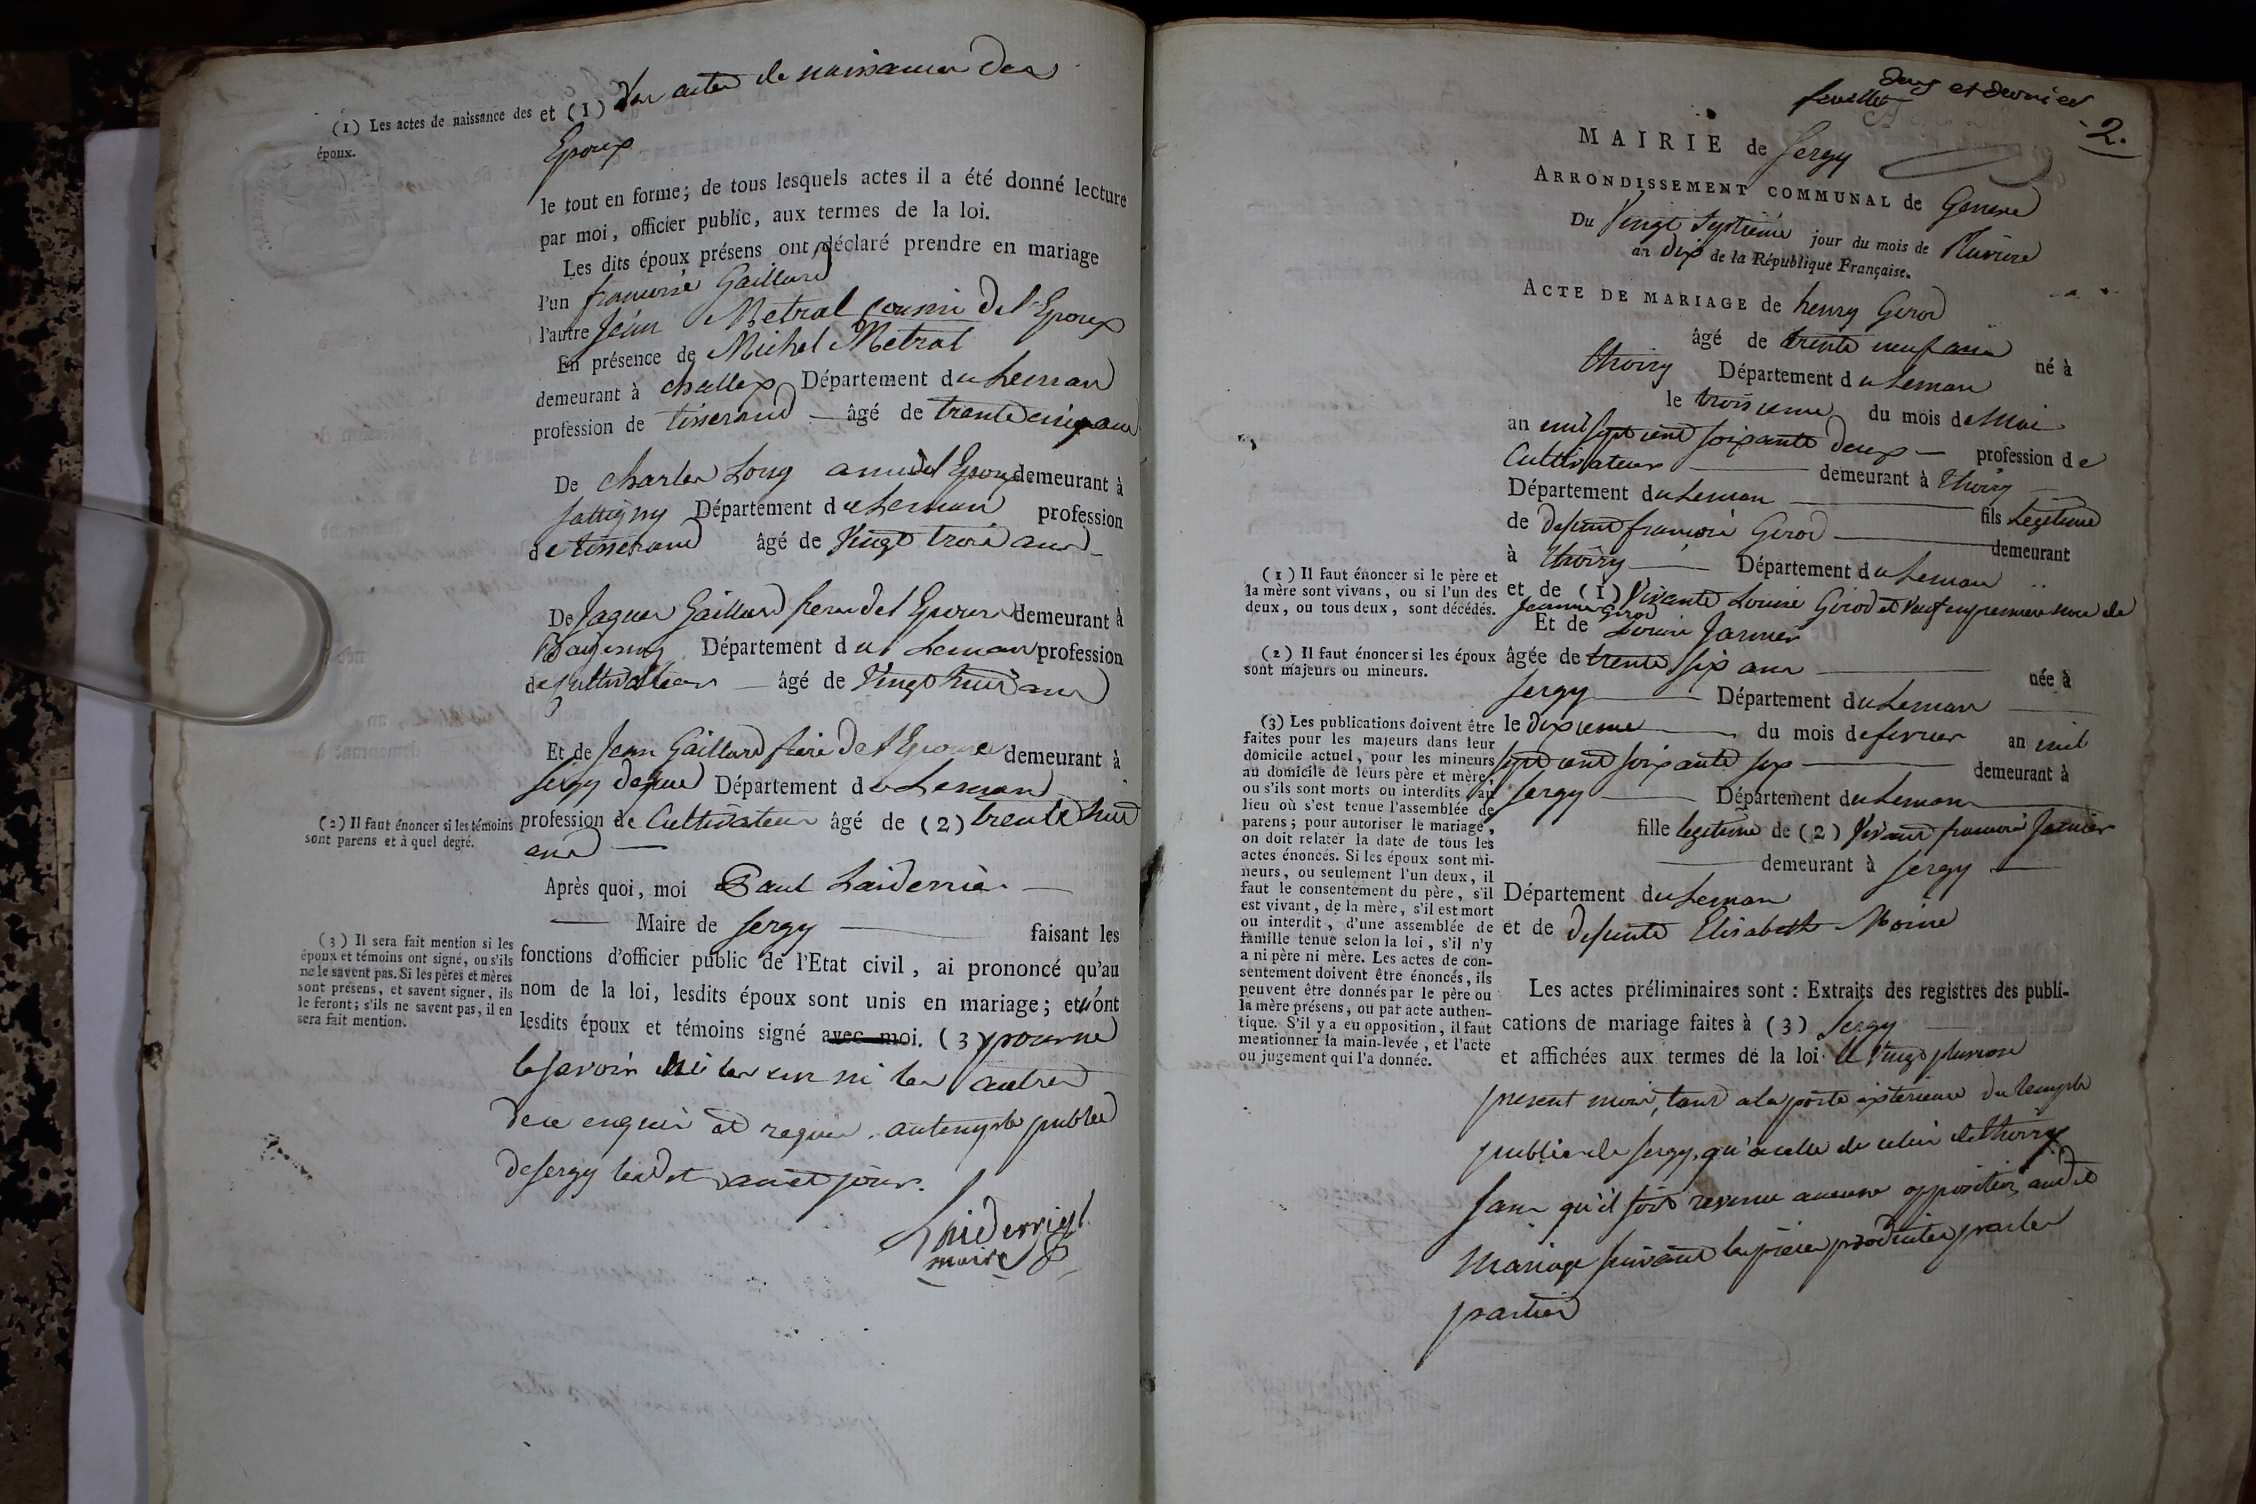 (1) Les actes de naissance des
époux.
et (1) Des actes de naissances des
Epoux
le tout en forme; de tous lesquels actes il a été donné lecture
par moi, officier public, aux termes de la loi.
Les dits époux présens ont déclaré prendre en mariage
l'un françoise Gaillard
l'autre Jean Metral cousin de l'Epoux
En présence de Michel Metral
demeurant à challex Département du Leman
profession de tisserand âgé de trente cinq ans
De charles Long ami de l Epoux demeurant à
Sattigny Département du Leman profession
de tisserand âgé de Vingt trois ans
De Jaques Gaillard frere de l Epouse demeurant à
Département du Leman profession
de Cultivateur âgé de Vingt huit ans
Et de Jean Gaillard frère de l'Epouse demeurant à
Sergy Département du Leman
(2) Il faut énoncer si les témoins
sont parens et à quel degré.
profession de Cultivateur âgé de (2) trente huit
ans
Après quoi, moi Paul Laiderrier
Maire de Sergy faisant les
(3) Il sera fait mention si les
époux et témoins ont signé, ou s'ils
ne le savent pas. Si les pères et mères
sont présens, et savent signer, ils
le feront; s'ils ne savent pas, il en
sera fait mention.
fonctions d'officier public de l'Etat civil, ai prononcé qu'au
nom de la loi, lesdits époux sont unis en mariage; et n'ont
lesdits époux et témoins signé avec moi. (3) pour ne
le savoir ni les uns ni les autres
de ce enquis et requis. au temple public
de Sergy lesdit an et jour.
Laiderrier
maire
deux et dernier
feuillet
2.
MAIRIE de Sergy
ARRONDISSEMENT COMMUNAL de Geneve
Du Vingt Septieme jour du mois de Pluviose
an dix de la République Française.
ACTE DE MARIAGE de henry Girod
âgé de trente neuf ans né à
thoiry Département du Leman
le troisieme du mois de Mai
an mil sept cent soixante deux profession de
Cultivateur demeurant à Thoiry
Département du Leman fils Legitime
de defunt françois Girod demeurant
à thoiry Département du Leman
(1) Il faut énoncer si le père et
la mère sont vivans, ou si l'un des
deux, ou tous deux, sont décédés.
et de (1) Vivante Louise Girod et veuf en premiere noce de
Jeanne Girod
Et de Louise Jannier
(2) Il faut énoncer si les époux
sont majeurs ou mineurs.
âgée de trente six ans née à
Sergy Département du Leman
le dixieme du mois de fevrier an mil
sept cent soixante six demeurant à
Sergy Département du Leman
fille legitime de (2) Vivant françois Janier
demeurant à Sergy
Département du Leman
et de defunte Elisabeth Moine
(3) Les publications doivent être
faites pour les majeurs dans leur
domicile actuel, pour les mineurs
au domicile de leurs père et mère,
ou s'ils sont morts ou interdits au
lieu où s'est tenue l'assemblée de
parens; pour autoriser le mariage,
on doit relater la date de tous les
actes énoncés. Si les époux sont mi-
neurs, ou seulement l'un deux, il
faut le consentement du père, s'il
est vivant, de la mère, s'il est mort
ou interdit, d'une assemblée de
famille tenue selon la loi, s'il n'y
a ni père ni mère. Les actes de con-
sentement doivent être énoncés, ils
peuvent être donnés par le père ou
la mère présens, ou par acte authen-
tique. S'il y a eu opposition, il faut
mentionner la main-levée, et l'acte
ou jugement qui l'a donnée.
Les actes préliminaires sont : Extraits des registres des publi-
cations de mariage faites à (3) Sergy
et affichées aux termes de la loi le Vingt pluviose
present mois, tant a la porte extérieure du temple
public de Sergy, qu'a celle de celui de Thoiry
sans qu'il soit revenu aucune opposition audit
Mariage suivant les pieces produites par les
parties